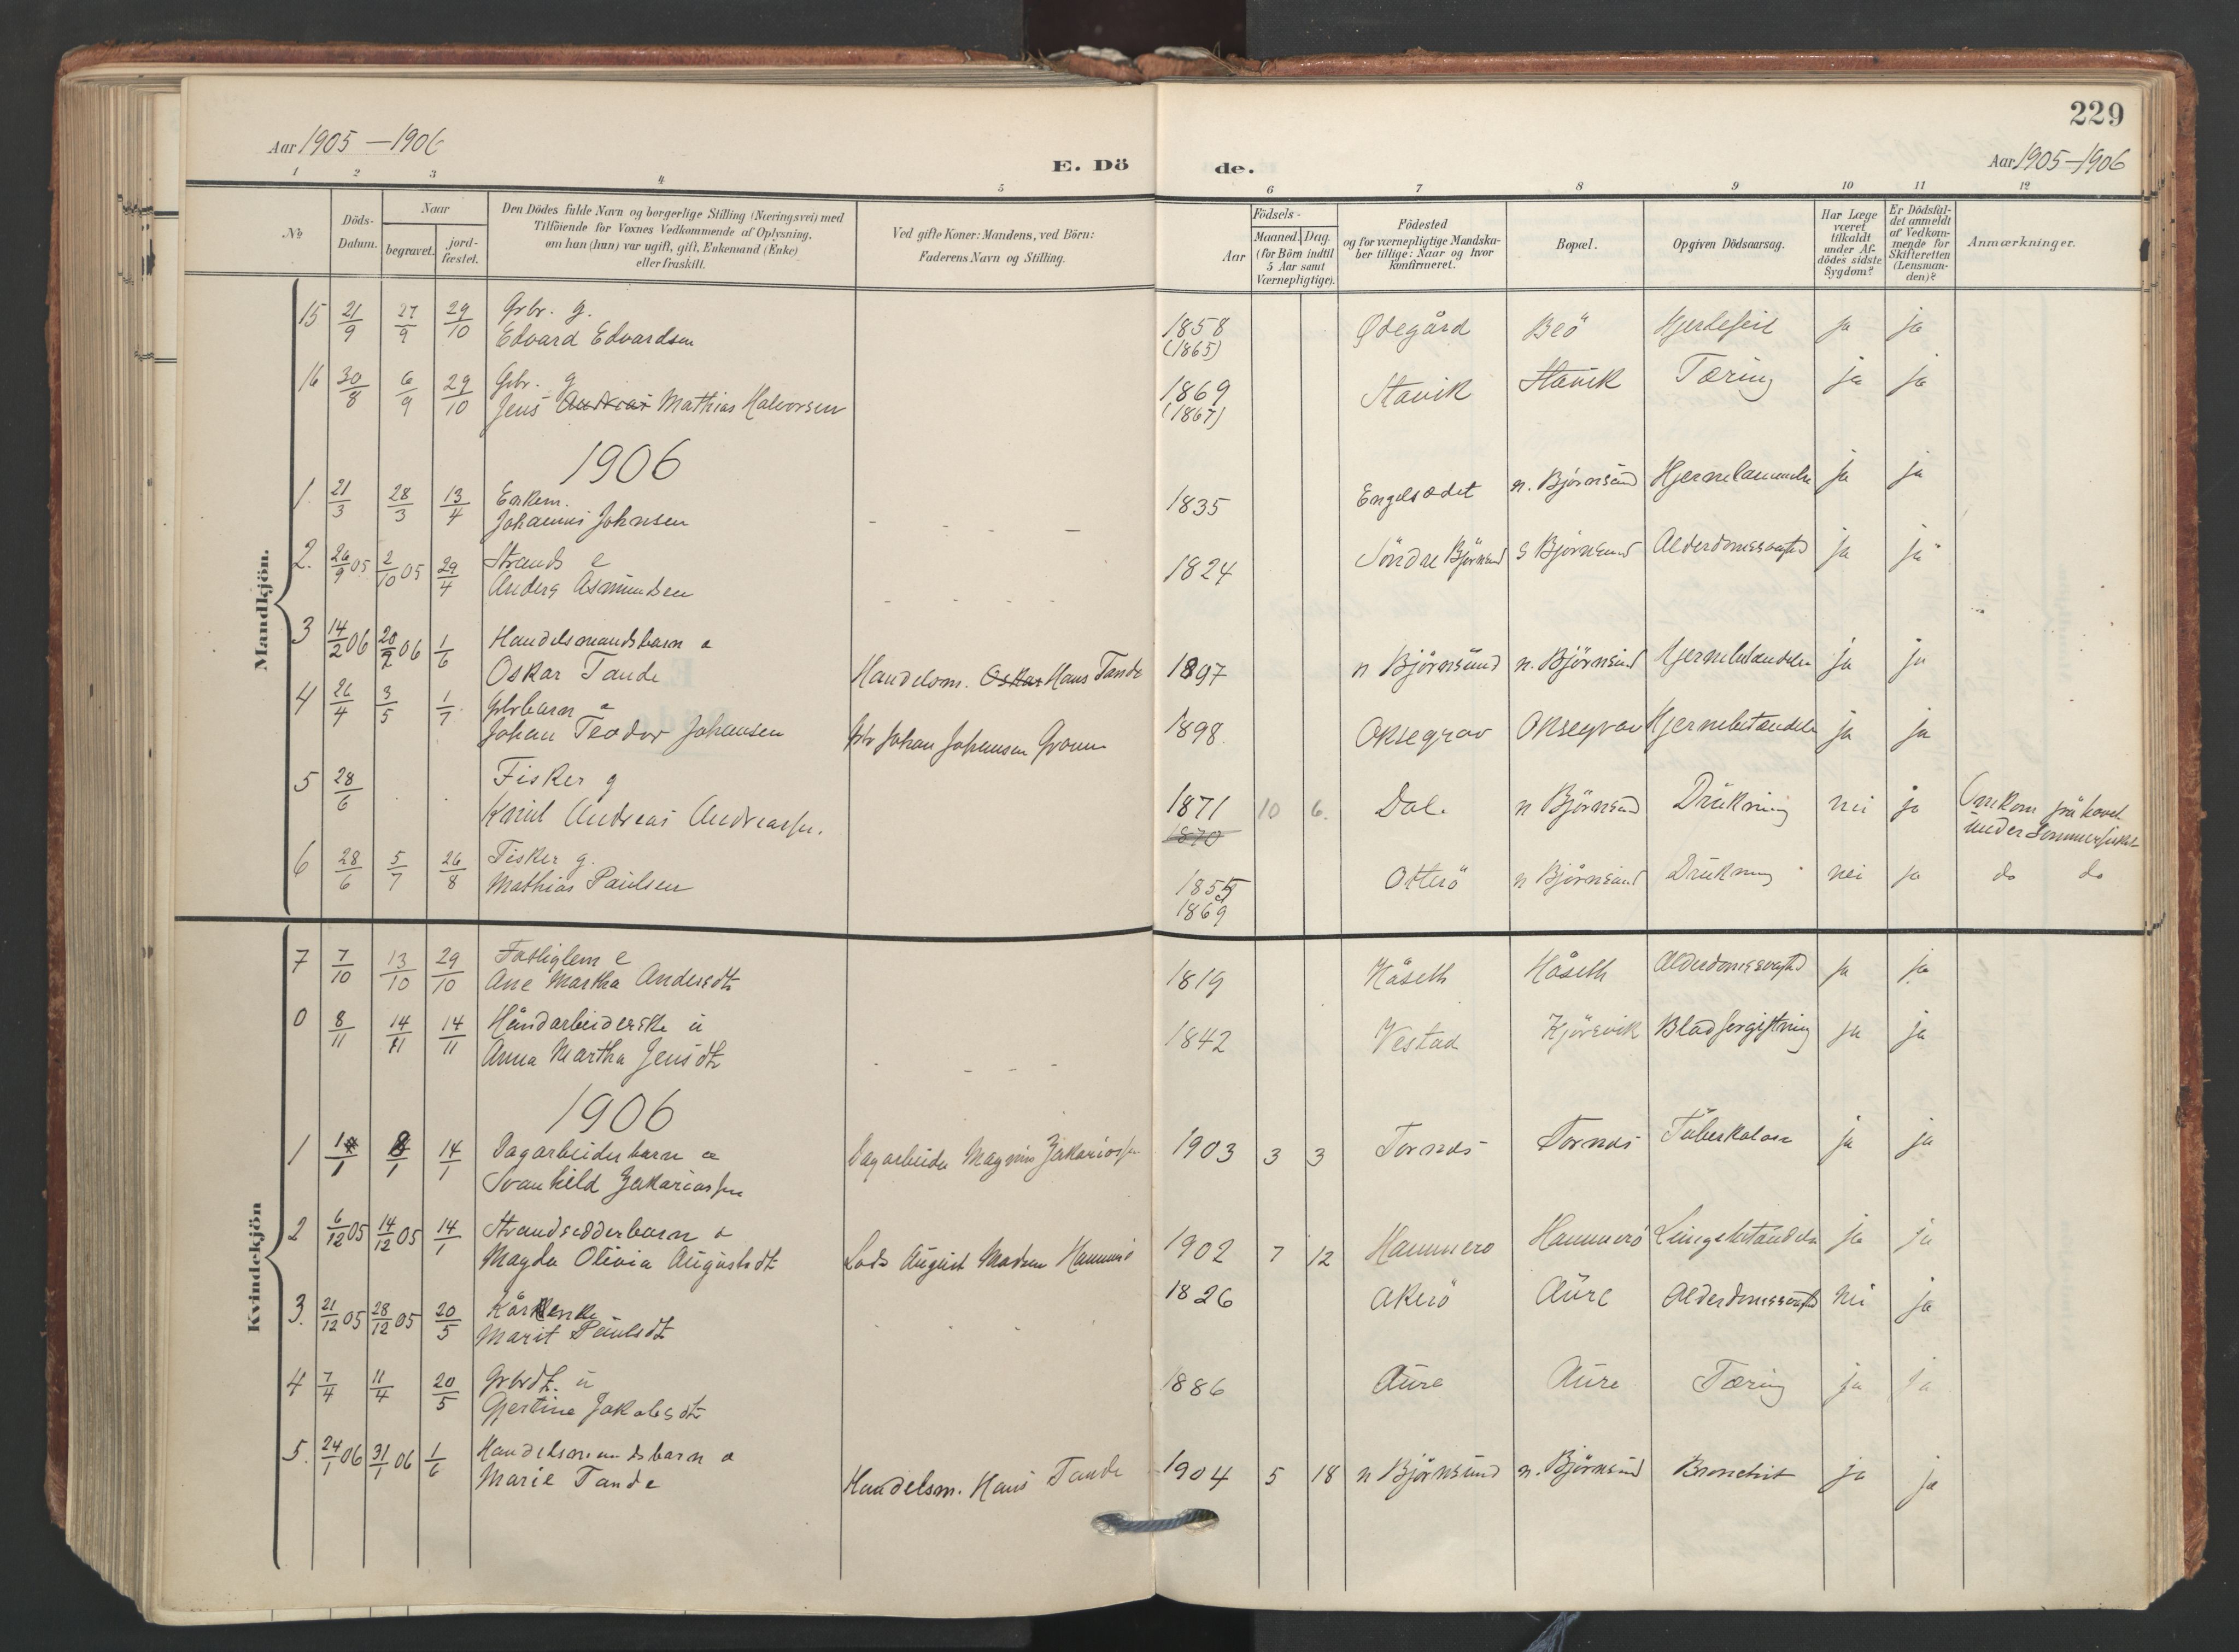 229
Aar 1905 — 1906
E. Dö de.
Aar 1905 — 1906
1 2 3 4 5 6 7 8 9 10 11 12
No
Döds-Datum.
Naar
begravet.
jord-fæstet.
Den Dödes fulde Navn og borgerlige Stilling (Næringsvei) med
Tilföiende for Voxnes Vedkommende af Oplysning,
om han (hun) var ugift, gift, Enkemand (Enke)
eller fraskilt.
Ved gifte Koner: Mandens, ved Börn:
Faderens Navn og Stilling.
Födsels-
Aar
Maaned. Dag.
(for Börn indtil
5 Aar samt
Værnepligtige).
Födested
og for værnepligtige Mandska-
ber tillige: Naar og hvor
konfirmeret.
Bopæl.
Opgiven Dödsaarsag.
Har Læge
været
tilkaldt
under Af-
dödes sidste
Sygdom?
Er Dödsfal-
det anmeldt
af Vedkom-
mende for
Skifteretten
(Lensman-
den)?
Anmærkninger.
Mandkjön.
15 21/9 27/9 29/10 Grbr. g.
Edvard Edvardsen 1858 Ødegård Beö Hjertefeil ja ja
(1865)
16 30/8 6/9 29/10 Gbr. g
Jens Andreas Mathias Halvorsen 1869 Stavik Stavik Tæring ja ja
(1867)
1906
1. 21/3 28/3 13/4 Enkem.
Johannes Johnsen - - - - 1835 Engelsædet n. Björnsund ja ja
2. 26/9 05 2/10 05 29/4 Strands e
Anders Asmundsen - - - - 1824 Söndre Björnsund s Björnsund Alderdomssvaghed ja ja
3 14/2 06 20/2 06 1/6 Handelsmandsbarn
Oskar Tande Handelsm. Oskar Hans Tande 1897 n Björnsund n. Björnsund Hjernebetændelse ja ja
4 26/4 3/5 1/7 Gbrbarn
Johan Teodor Johansen Gbr Johan Johansen 1898. Oksegrav Oksegrav Hjernebetændelse ja ja
5 28/6 Fisker g
Knut Andreas Andreassen. 1871 10 6. Dale n Björnsund Drukning nei ja Omkom på havet
1870 under Sommerfisket
6 28/6 5/7 26/8 Fisker g.
Mathias Paulsen 1855 Otterö n Björnsund Drukning nei ja do do
1869
Kvindekjön
7 7/10 13/10 29/10 Fattiglem e
Ane Martha Andersdtr 1819 Håseth Håseth Alderdomssvaghed ja ja
8/11 14/11 14/11 Håndarbeiderske u
Anna Martha Jensdtr - - - - 1842 Vestad Kjörsvik Blodforgiftning ja ja
1906
1 1/1 8/1 14/1 Dagarbeiderbarn
Svanhild Zakariassen Dagarbeider Magnus Zakariassen 1903 3 3 Tornes Tornes Tuberkulose ja ja
2 6/12 05 14/12 05 14/1 Strandsidderbarn
Magda Olivia Augustsdtr Lods August Madsen Hammerö 1902 7 12 Hammerö Hammerö Lungebetændelse ja ja
3. 21/12 05 28/12 05 20/5 Kårenke
Marit Paulsdtr 1826 Akerö Aure Alderdomssvaghed nei ja
4 7/4 11/4 20/5 Gbrdtr. u
Gjertine Jakobsdtr 1886 Aure Aure Tæring ja ja
5. 24/1 06 31/1 06 1/6 Handelsmandsbarn
Marie Tande Handelsm. Hans Tande 1904 5 18 n Björnsund n. Björnsund Bronchit ja ja